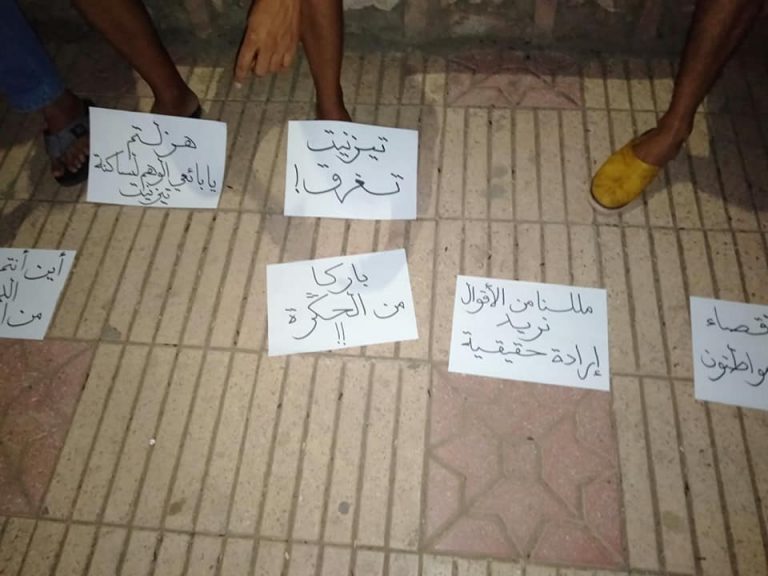 هزلتم
يا بائعي الوهم لساكنة
تيزنيت
تيزنيت
تغرق!
أين أنتم
من
باركا
من الحكّرة
!!
مللنا من الأقوال
نريد
إرادة حقيقية
قصاء
مواطنون